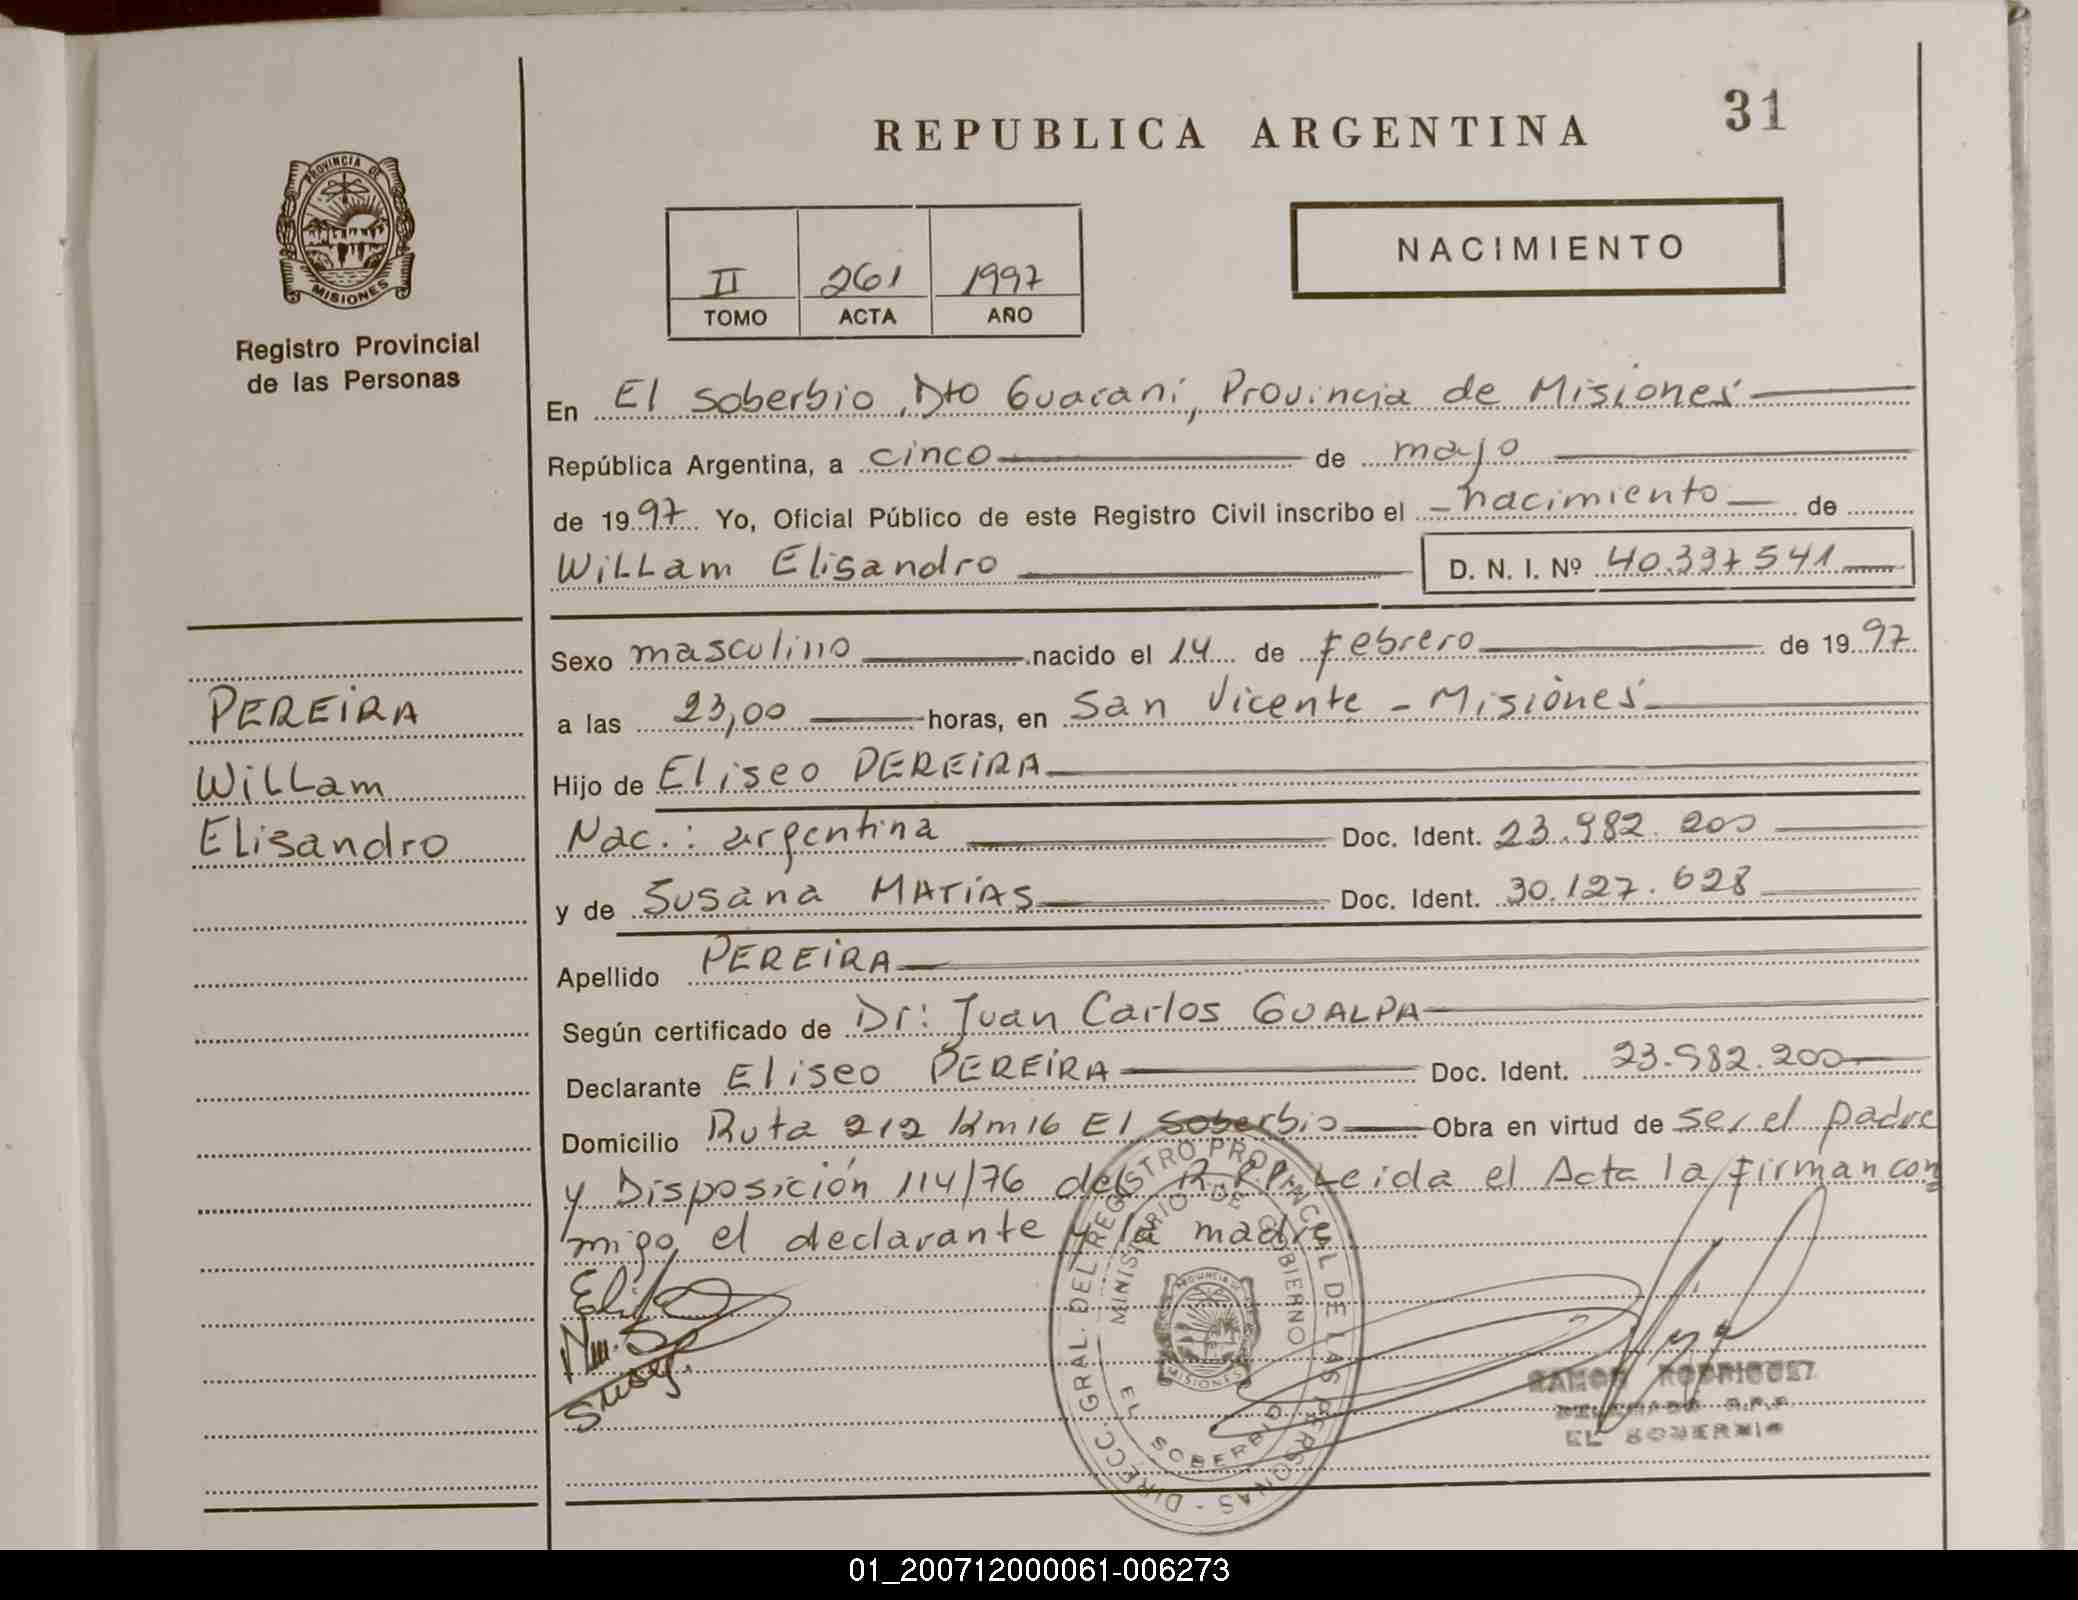 31
REPUBLICA ARGENTINA
PROVINCIA DE
MISIONES
Registro Provincial
de las Personas
II 261 1997
TOMO ACTA AÑO
NACIMIENTO
En El Soberbio, Dto Guaraní, Provincia de Misiones
República Argentina, a cinco de mayo
de 1997 Yo, Oficial Público de este Registro Civil inscribo el nacimiento de
WiLLam Elisandro D. N. I. Nº 40.397541
Sexo masculino nacido el 14 de febrero de 1997
a las 23,00 horas, en San Vicente - Misiones
Hijo de Eliseo PEREiRA
Nac.: argentina Doc. Ident. 23.982.200
y de Susana MATíAS Doc. Ident. 30.127.628
Apellido PEREiRA
Según certificado de Dr: Juan Carlos GUALPA
Declarante Eliseo PEREiRA Doc. Ident. 23.982.200
Domicilio Ruta 212 Km16 El Soberbio Obra en virtud de ser el padre
y Disposición 114/76 del R.P.P. Leida el Acta la firman con
migo el declarante y la madre
PEREiRA
WiLLam
Elisandro
DIRECC. GRAL. DEL REGISTRO PROVINCIAL DE LAS PERSONAS -
MINISTERIO DE GOBIERNO
PROVINCIA DE
MISIONES
EL SOBERBIO
RAMON RODRIGUEZ
DELEGADO R.P.P.
EL SOBERBIO
01_200712000061-006273